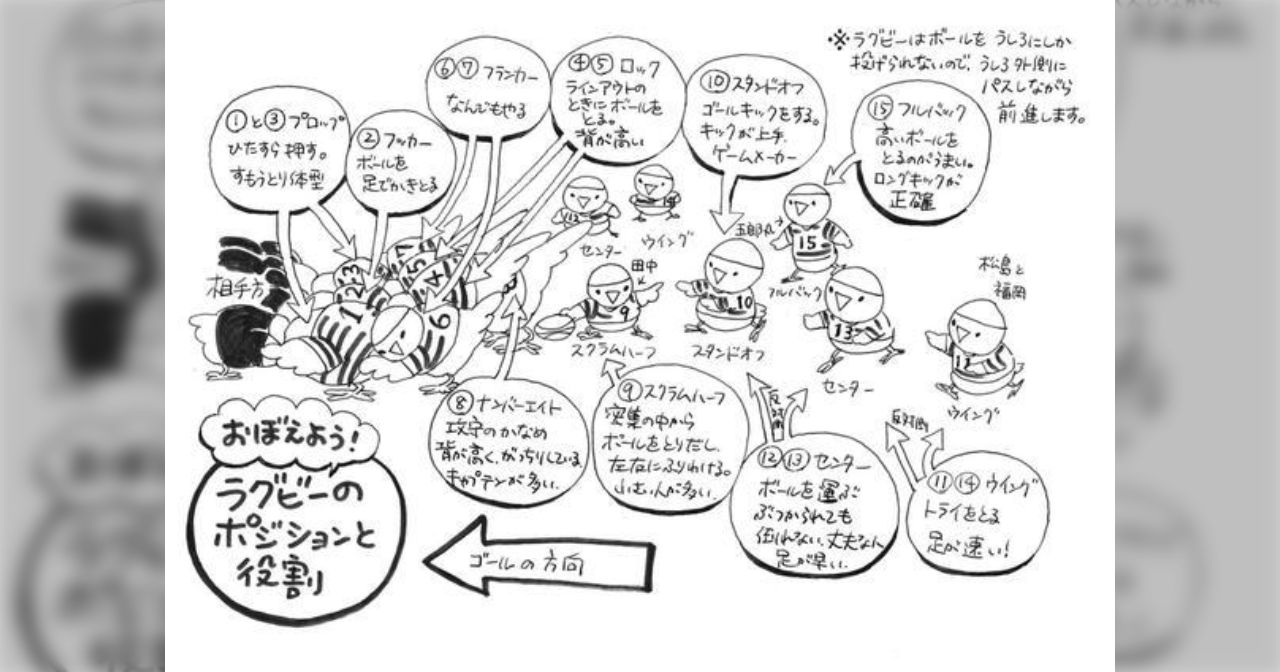 ※ラグビーはボールを うしろにしか
投げられないので、うしろ外側に
パスしながら
前進します。
①と③プロップ
ひたすら押す。
すもうとり体型
②フッカー
ボールを
足でかきとる
⑥⑦フランカー
なんでもやる
④⑤ロック
ラインアウトの
ときにボールを
とる。
背が高い
⑩スタンドオフ
ゴールキックをする。
キックが上手。
ゲームメーカー
⑮フルバック
高いボールを
とるのがうまい。
ロングキックが
正確
相手方
12
センター
14
ウイング
田中
9
スクラムハーフ
10
スタンドオフ
五郎丸
15
フルバック
13
センター
松島と
福岡
11
ウイング
1
2
3
4
5
6
7
8
⑧ナンバーエイト
攻守のかなめ
背が高く、がっちりしている
キャプテンが多い。
⑨スクラムハーフ
密集の中から
ボールをとりだし、
左右にふりわける。
小さい人が多い。
反対側
⑫⑬センター
ボールを運ぶ
ぶつかられても
倒れない、丈夫な人
足が早い。
反対側
⑪⑭ウイング
トライをとる
足が速い!
おぼえよう!
ラグビーの
ポジションと
役割
ゴールの方向